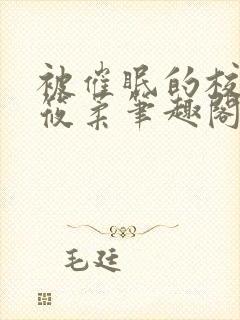 被催眠的校
筱柔笔趣阁
毛廷